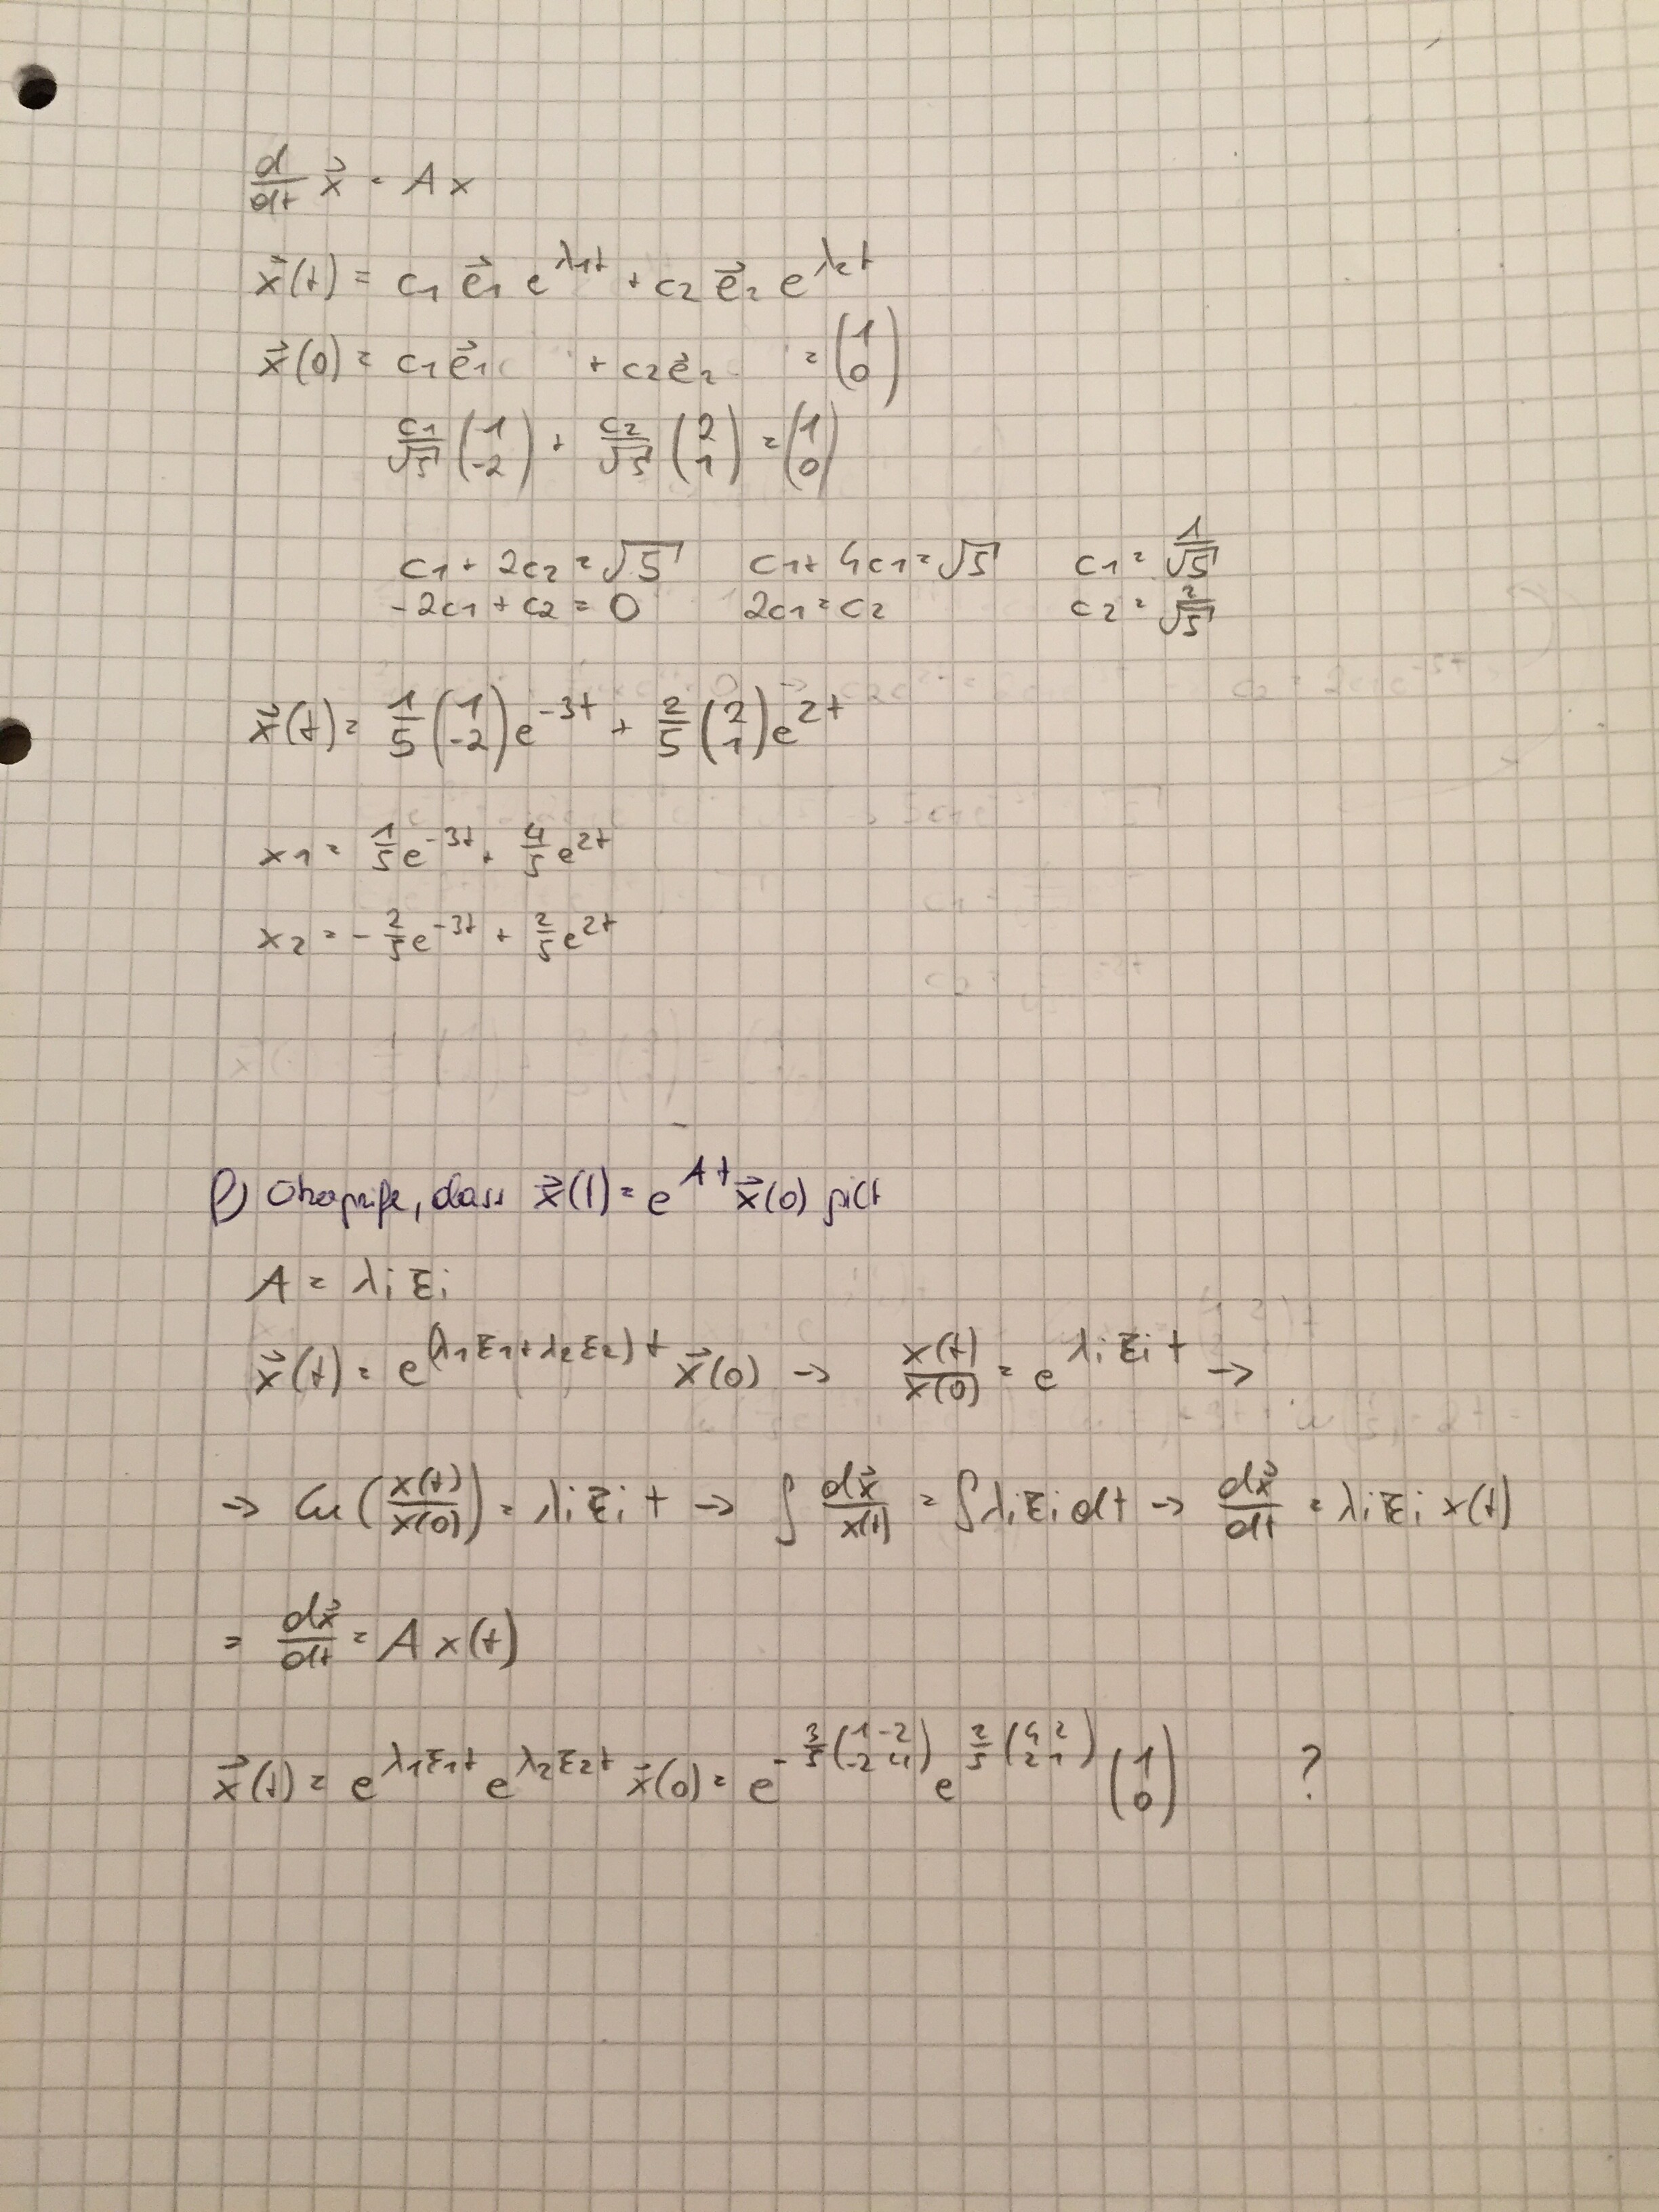 d/dt x⃗ = A x
x⃗(t) = c₁ e⃗₁ e^(λ₁t) + c₂ e⃗₂ e^(λ₂t)
x⃗(0) = c₁e⃗₁ + c₂e⃗₂ = (1 0)
c₁/√5 (1 -2) + c₂/√5 (2 1) = (1 0)
c₁ + 2c₂ = √5 c₁ + 4c₁ = √5 c₁ = 1/√5
-2c₁ + c₂ = 0 2c₁ = c₂ c₂ = 2/√5
x⃗(t) = 1/5 (1 -2) e^(-3t) + 2/5 (2 1) e^(2t)
x₁ = 1/5 e^(-3t) + 4/5 e^(2t)
x₂ = - 2/5 e^(-3t) + 2/5 e^(2t)
f) Überprüfe, dass x⃗(t) = e^(At) x⃗(0) gilt
A = λᵢ Eᵢ
x⃗(t) = e^((λ₁E₁+λ₂E₂)t) x⃗(0) → x(t)/x(0) = e^(λᵢEᵢt) →
→ ln (x(t)/x(0)) = λᵢEᵢ t → ∫ dx⃗/x(t) = ∫ λᵢEᵢ dt → dx⃗/dt = λᵢEᵢ x(t)
= dx⃗/dt = A x(t)
x⃗(t) = e^(λ₁E₁t) e^(λ₂E₂t) x⃗(0) = e^(-3/5 (1 -2 -2 4)) e^(2/5 (4 2 2 1)) (1 0) ?